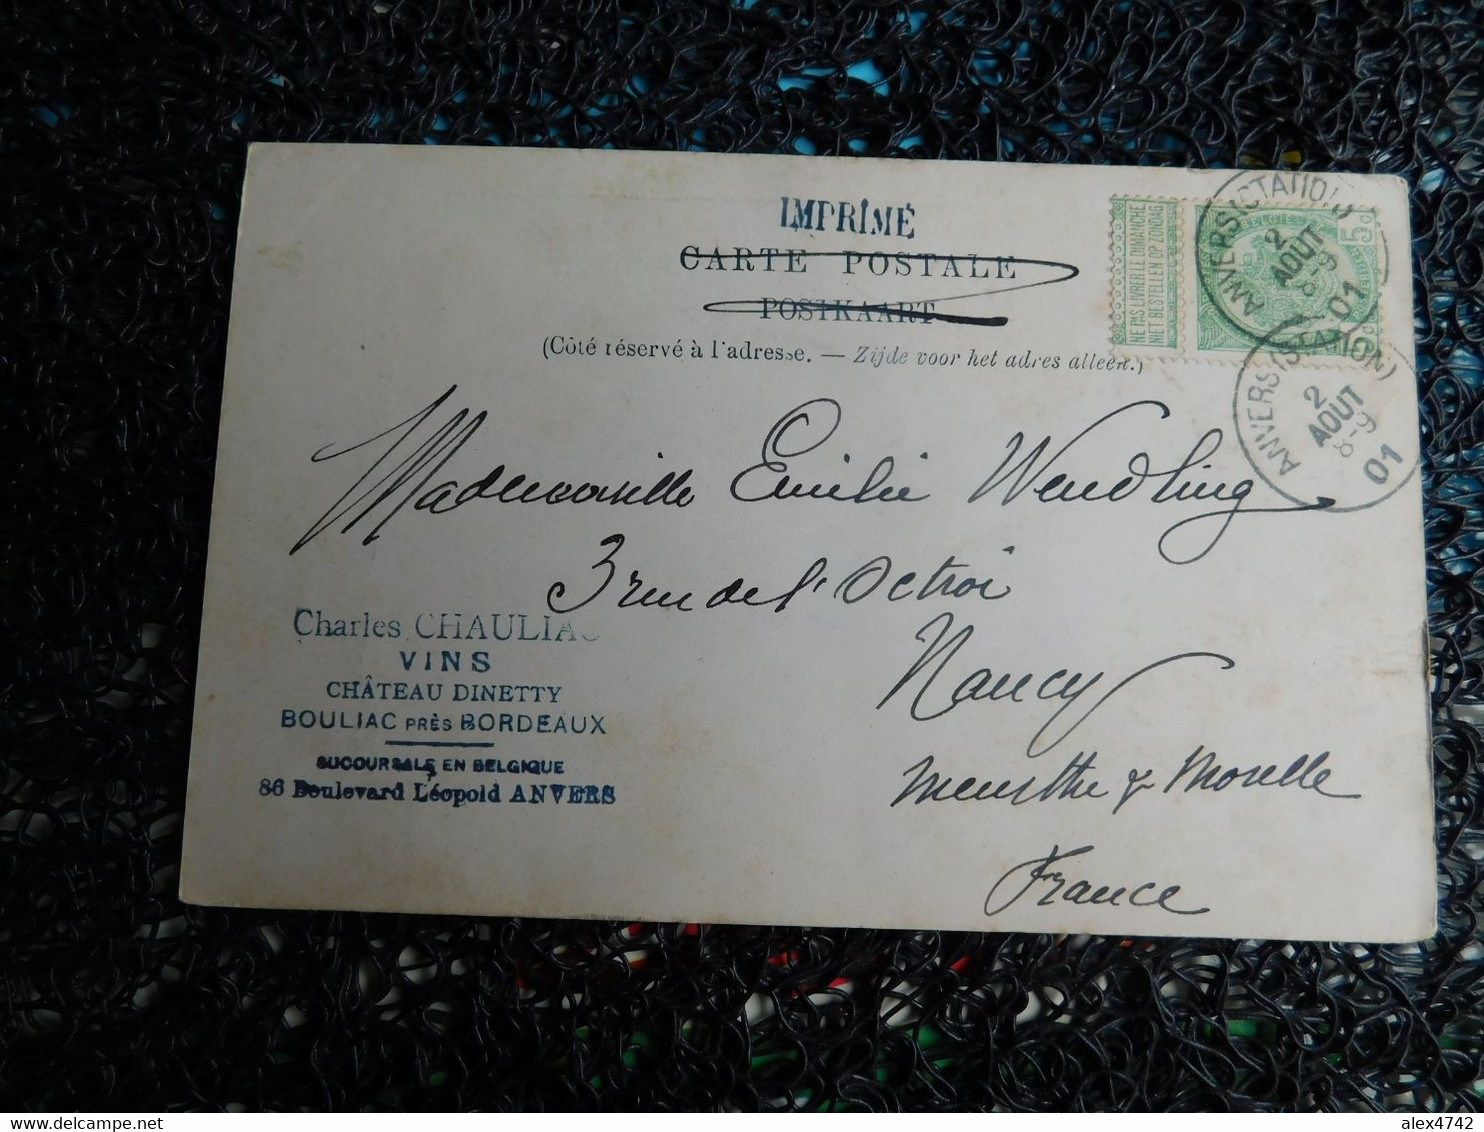 IMPRIMÉ
CARTE POSTALE
POSTKAART
(Côté réservé à l'adresse. — Zijde voor het adres alleen.)
NE PAS LIVRER LE DIMANCHE
NIET BESTELLEN OP ZONDAG
BELGIE
5
ANVERS (STATION)
2
AOUT
8-9
01
ANVERS (STATION)
2
AOUT
8-9
01
Mademoiselle Emilie Wendling
3 rue de l'Octroi
Nancy
Meurthe & Moselle
France
Charles CHAULIAC
VINS
CHÂTEAU DINETTY
BOULIAC PRÈS BORDEAUX
SUCCURSALE EN BELGIQUE
86 Boulevard Léopold ANVERS
alex4742